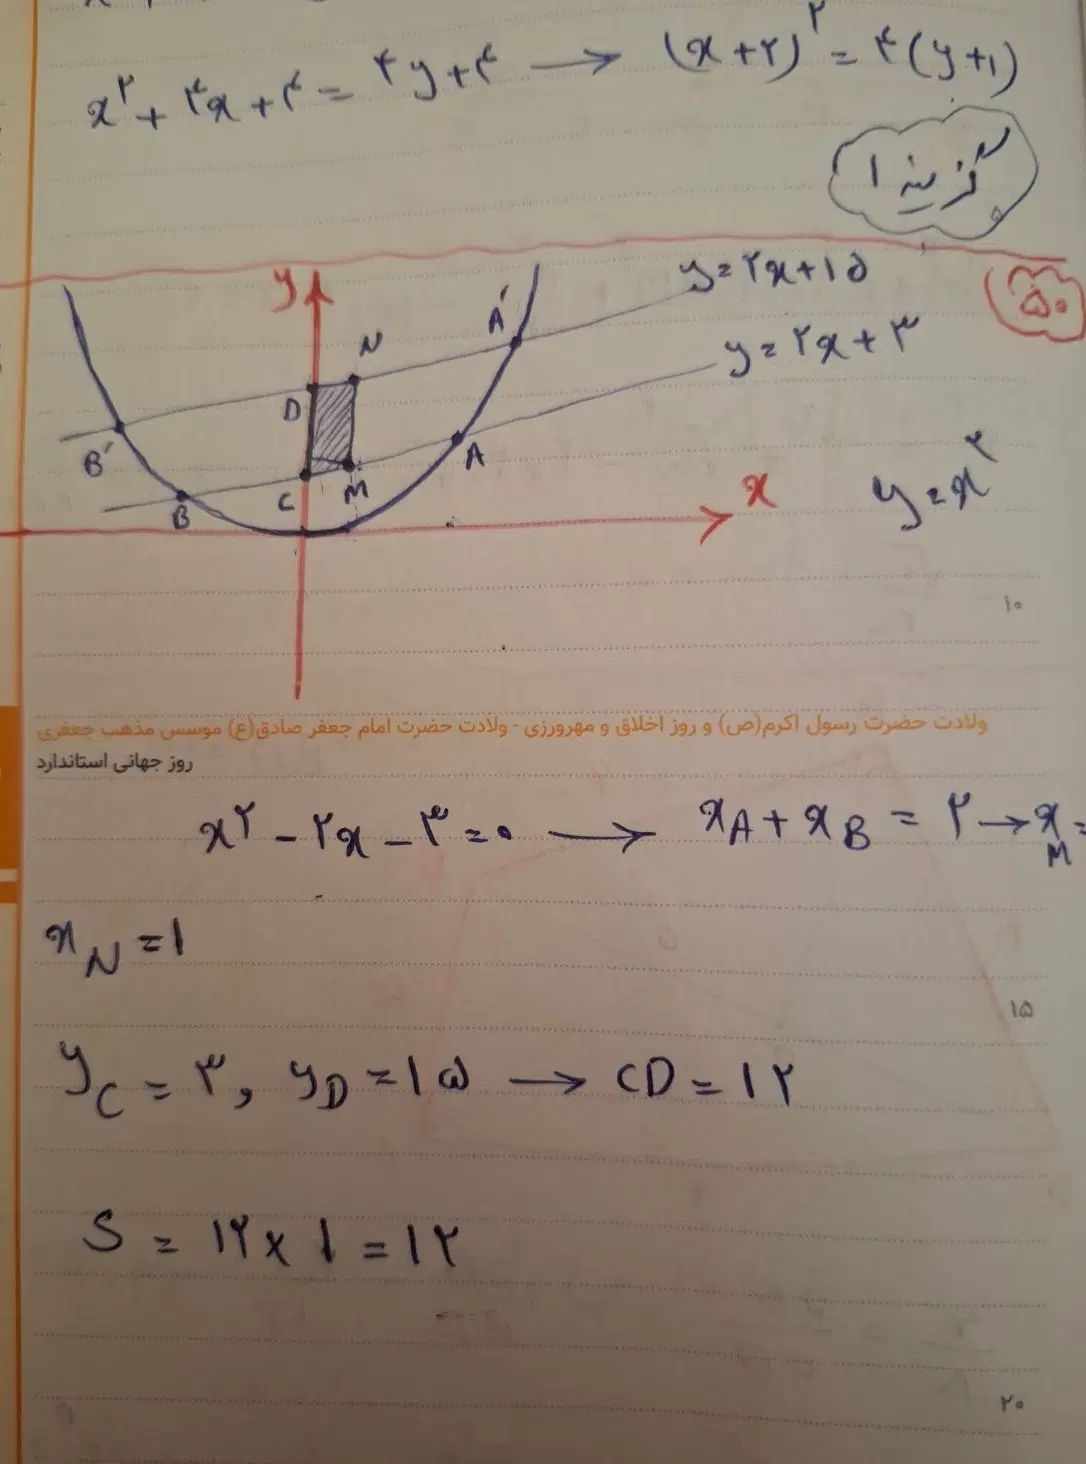 x²+۴x+۴=۴y+۴ → (x+۲)²=۴(y+۱)
گزینه ۱
۵۰
y=۲x+۱۵
y=۲x+۳
y=x²
y
x
A'
N
D
B'
A
B
C
M
۱۰
ولادت حضرت رسول اکرم(ص) و روز اخلاق و مهرورزی - ولادت حضرت امام جعفر صادق(ع) موسس مذهب جعفری
روز جهانی استاندارد
x²-۲x-۳=۰ → x_A+x_B=۲→x_M=
x_N=۱
۱۵
y_C=۳, y_D=۱۵ → CD=۱۲
S=۱۲×۱=۱۲
۲۰